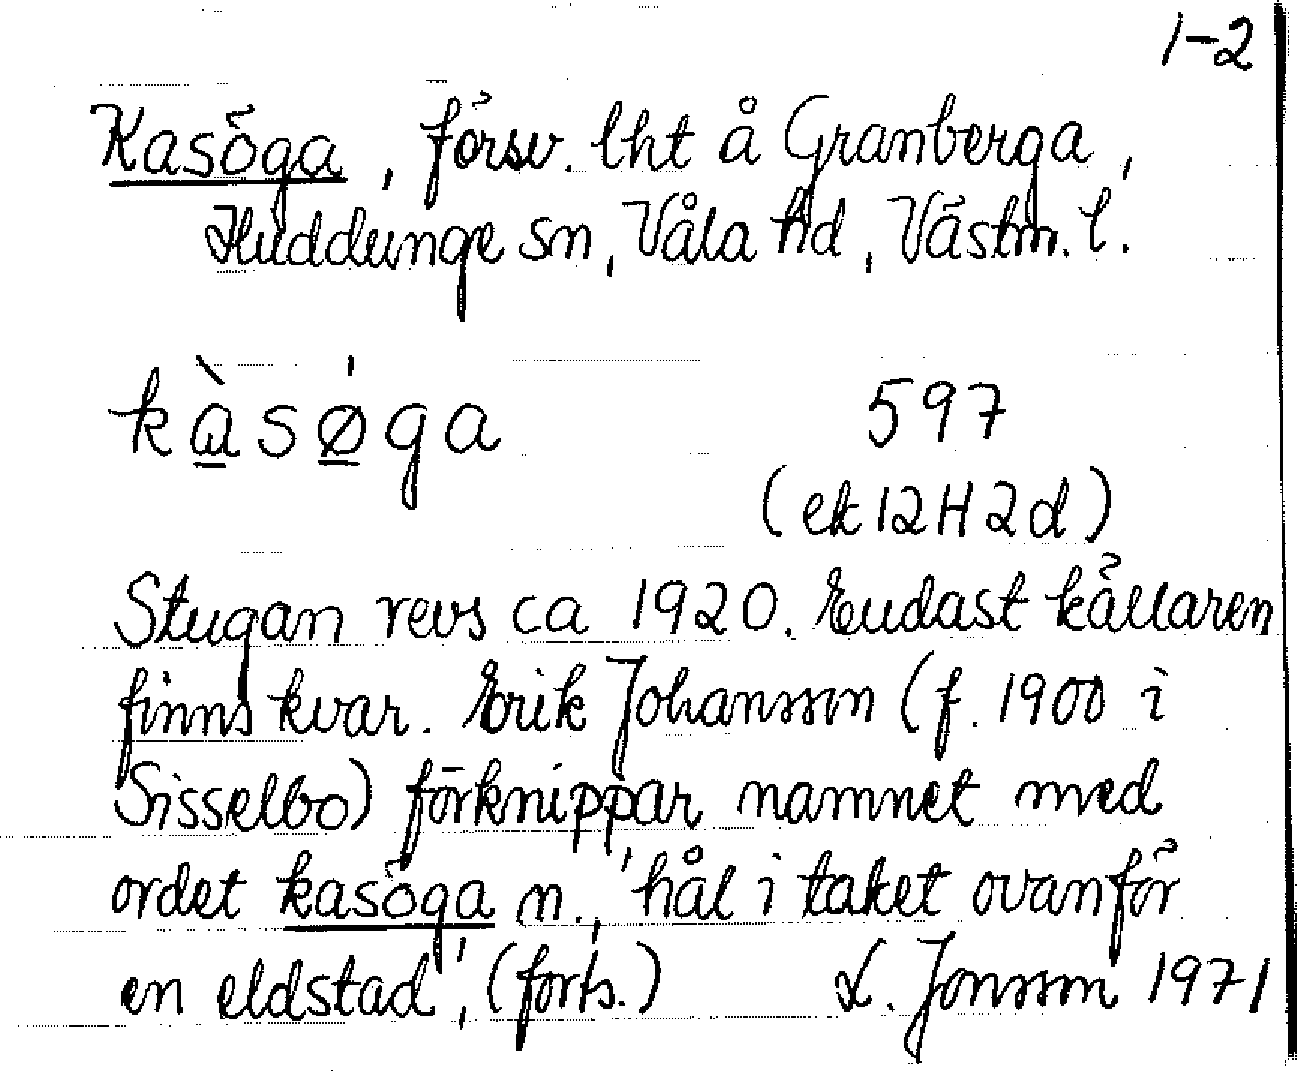 1-2
Kasöga, försv. lht å Granberga,
Huddunge sn, Våla hd, Västm. l.
kàsø̍ga 597
(ek 12H2d)
Stugan revs ca 1920. Endast källaren
finns kvar. Erik Johansson (f. 1900 i
Sisselbo) förknippar namnet med
ordet kasöga n., 'hål i taket ovanför
en eldstad', (forts.) L. Jonsson 1971